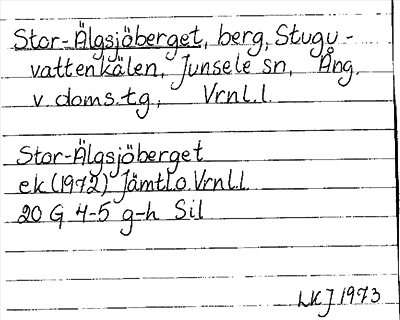 Stor-Älgsjöberget, berg, Stugu-
vattenkälen, Junsele sn, Ång.
v. doms.tg, Vrnl.l.
Stor-Älgsjöberget
ek (1972) Jämtl.o.Vrnl.l.
20 G 4-5 g-h Sil
LKJ 1973